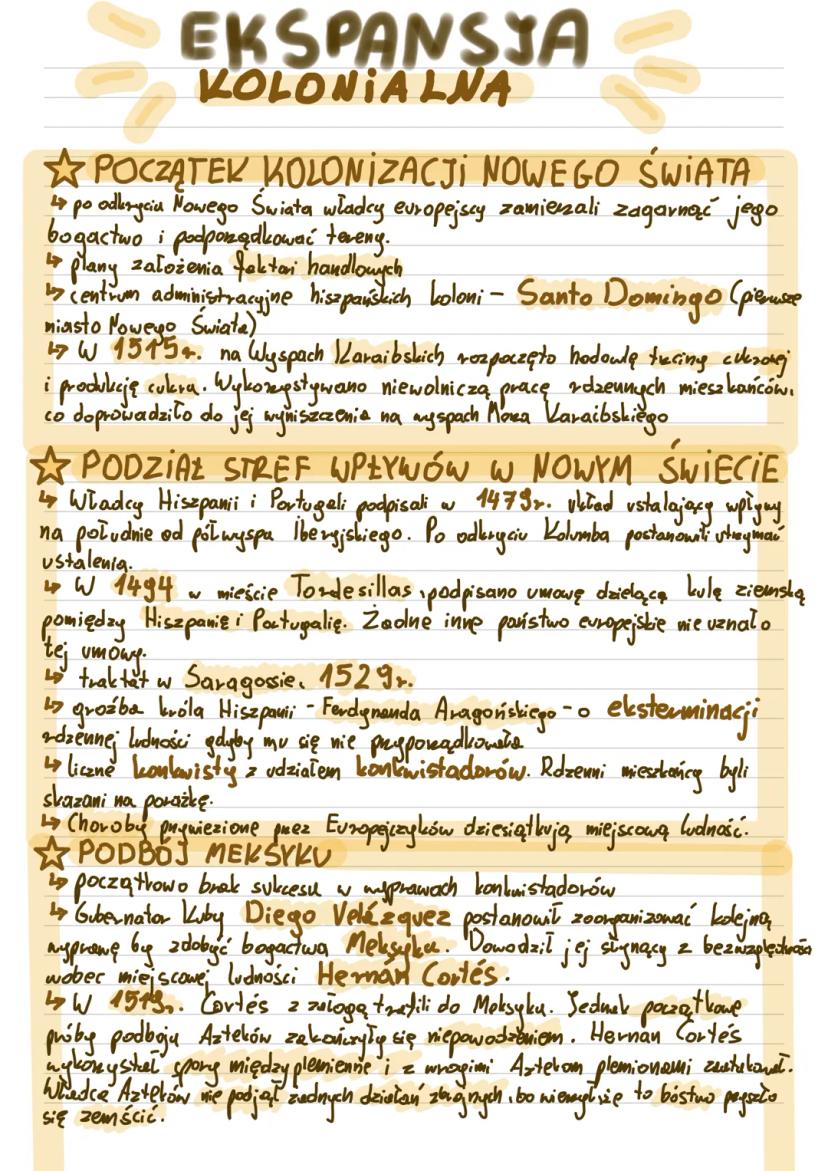 EKSPANSJA
KOLONIALNA
POCZĄTEK KOLONIZACJI NOWEGO ŚWIATA
↳ po odkryciu Nowego Świata władcy europejscy zamierzali zagarnąć jego
bogactwo i podporządkować tereny.
↳ plany założenia faktori handlowych
↳ centrum administracyjne hiszpańskich koloni - Santo Domingo (pierwsze
miasto Nowego Świata)
↳ W 1515r. na Wyspach Karaibskich rozpoczęto hodowlę trzciny cukrowej
i produkcję cukru. Wykorzystywano niewolniczą pracę rdzennych mieszkańców,
co doprowadziło do jej wyniszczenia na wyspach Morza Karaibskiego
PODZIAŁ STREF WPŁYWÓW W NOWYM ŚWIECIE
↳ Władcy Hiszpanii i Portugali podpisali w 1479r. układ ustalający wpływy
na południe od półwyspa Iberyjskiego. Po odkryciu Kolumba postanowili utrzymać
ustalenia.
↳ W 1494 w mieście Tordesillas podpisano umowę dzielącą kulę ziemską
pomiędzy Hiszpanię i Portugalię. Żadne inne państwo europejskie nie uznało
tej umowy.
↳ traktat w Saragossie, 1529r.
↳ groźba króla Hiszpanii - Ferdynanda Aragońskiego - o eksterminacji
rdzennej ludności gdyby mu się nie przyporządkowała
↳ liczne konkwisty z udziałem konkwistadorów. Rdzenni mieszkańcy byli
skazani na porażkę.
↳ Choroby przywiezione przez Europejczyków dziesiątkują miejscową ludność.
PODBÓJ MEKSYKU
↳ początkowo brak sukcesu w wyprawach konkwistadorów
↳ Gubernator Kuby Diego Velázquez postanowił zoorganizować kolejną
wyprawę by zdobyć bogactwa Meksyku. Dowodził jej słynący z bezwzględności
wobec miejscowej ludności Hernán Cortés.
↳ W 1519r. Cortés z załogą trafili do Meksyku. Jednak początkowe
próby podboju Azteków zakończyły się niepowodzeniem. Hernan Cortés
wykorzystał spory międzyplemienne i z wrogimi Aztekom plemionami zaatakował.
Władca Azteków nie podjął żadnych działań zbrojnych, bo wierzył, że to bóstwo przyszło
się zemścić.